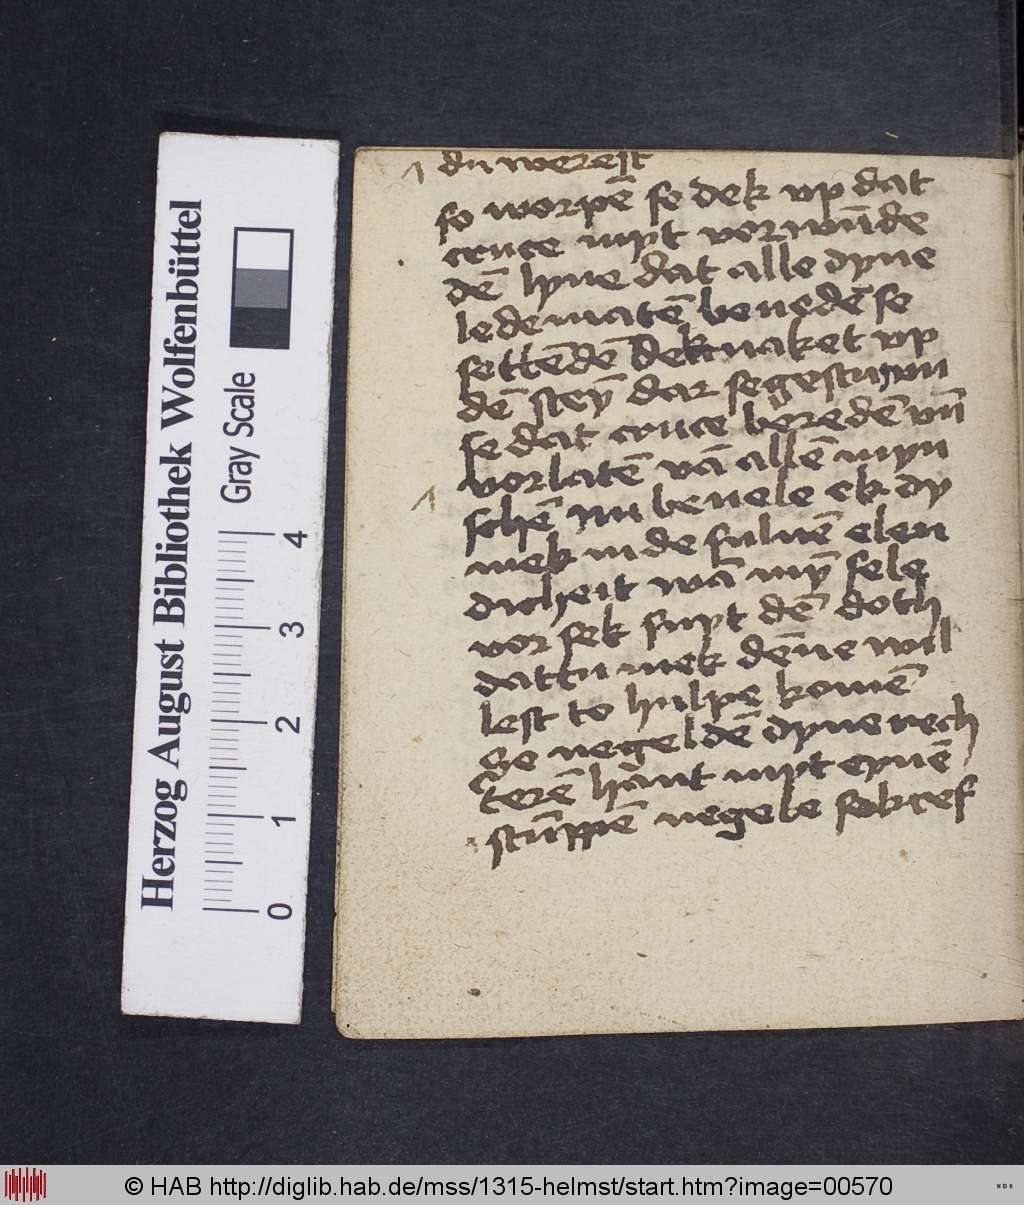 du werest
so worpē se dek vp dat
cruce myt vorwūde
dē lyue dat alle dyne
ledematē beuedē se
settēdē dek naket vp
dē steȳ dar se gestu
se dat cruce beredē vn̄
vorlatē vā allē myn
schē nu beuele ek dy
mek in de suluē elen
dicheit wā mȳ sele
vor sek suyt dē doth
dattu mek dēne wil
lest to hulpe komē
Se negeldē dyne vech
terē hānt myt eynē
stūppē negele sek
Herzog August Bibliothek Wolfenbüttel
Gray Scale
0 1 2 3 4
© HAB http://diglib.hab.de/mss/1315-helmst/start.htm?image=00570